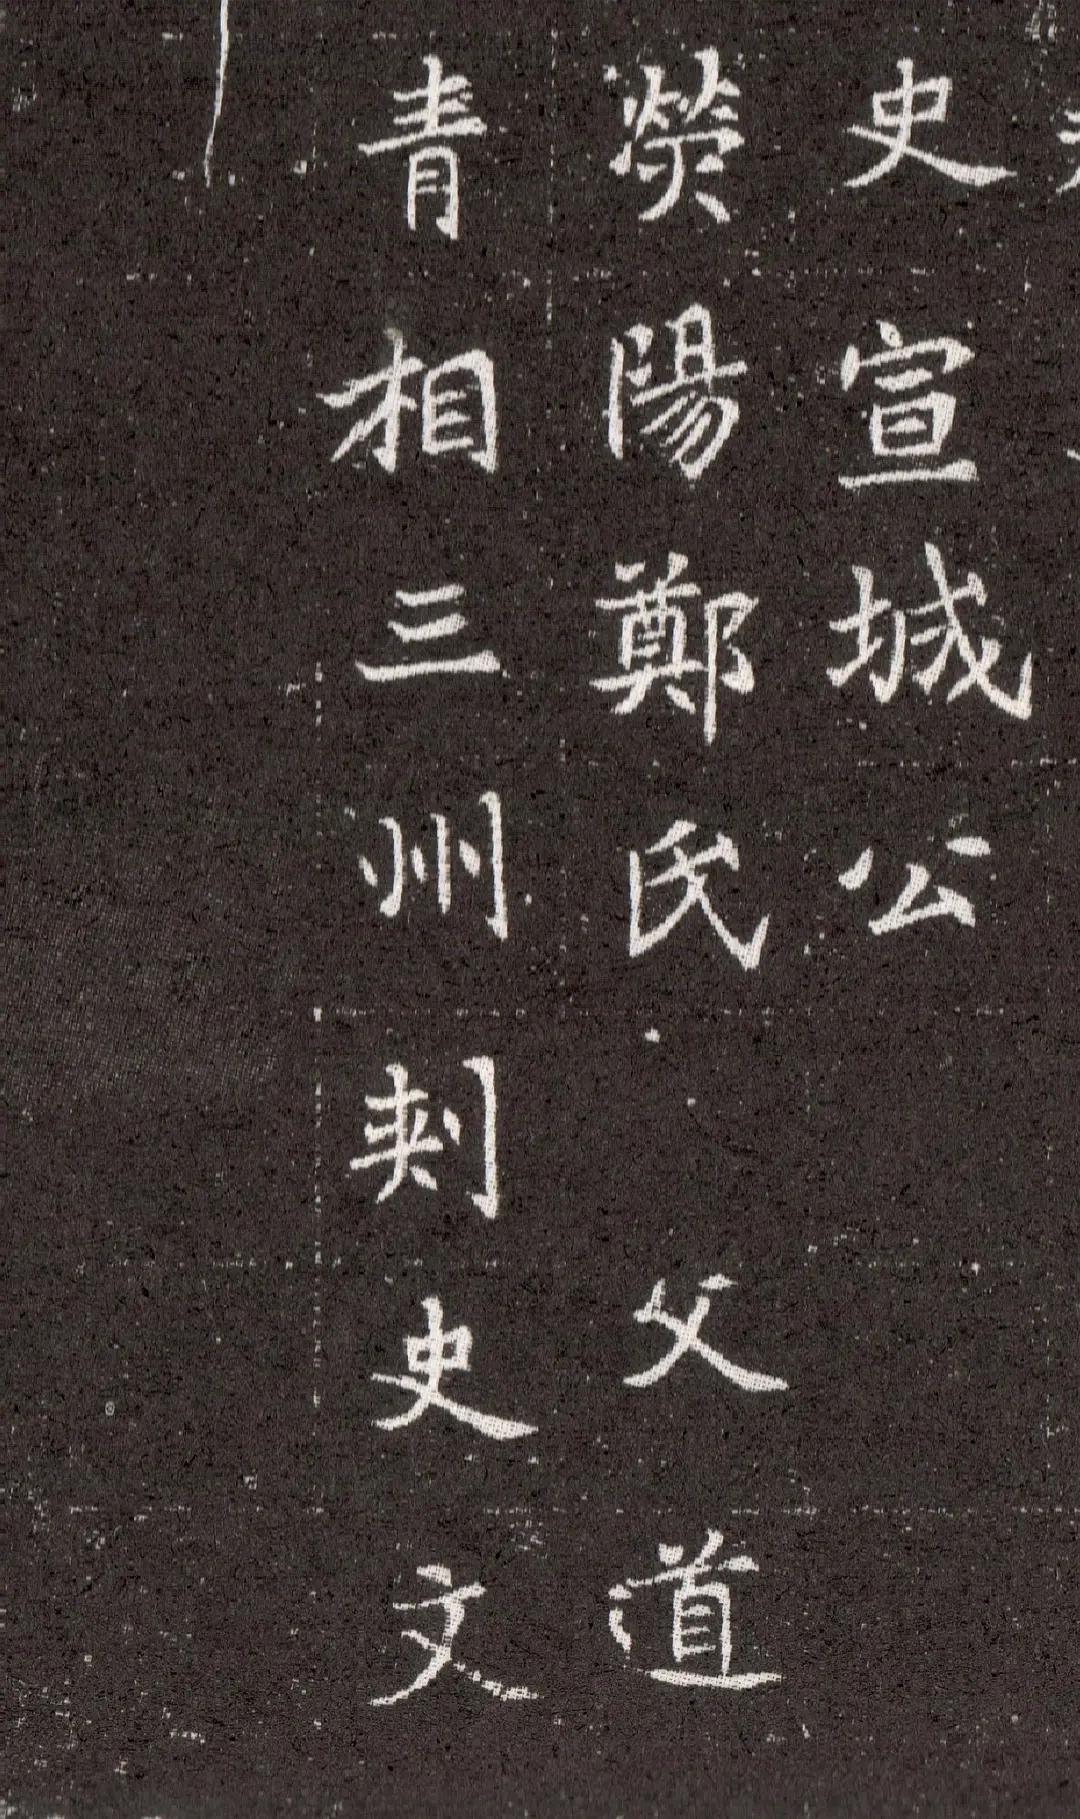 史宣城公
熒陽鄭氏 父道
青相三州刺史文